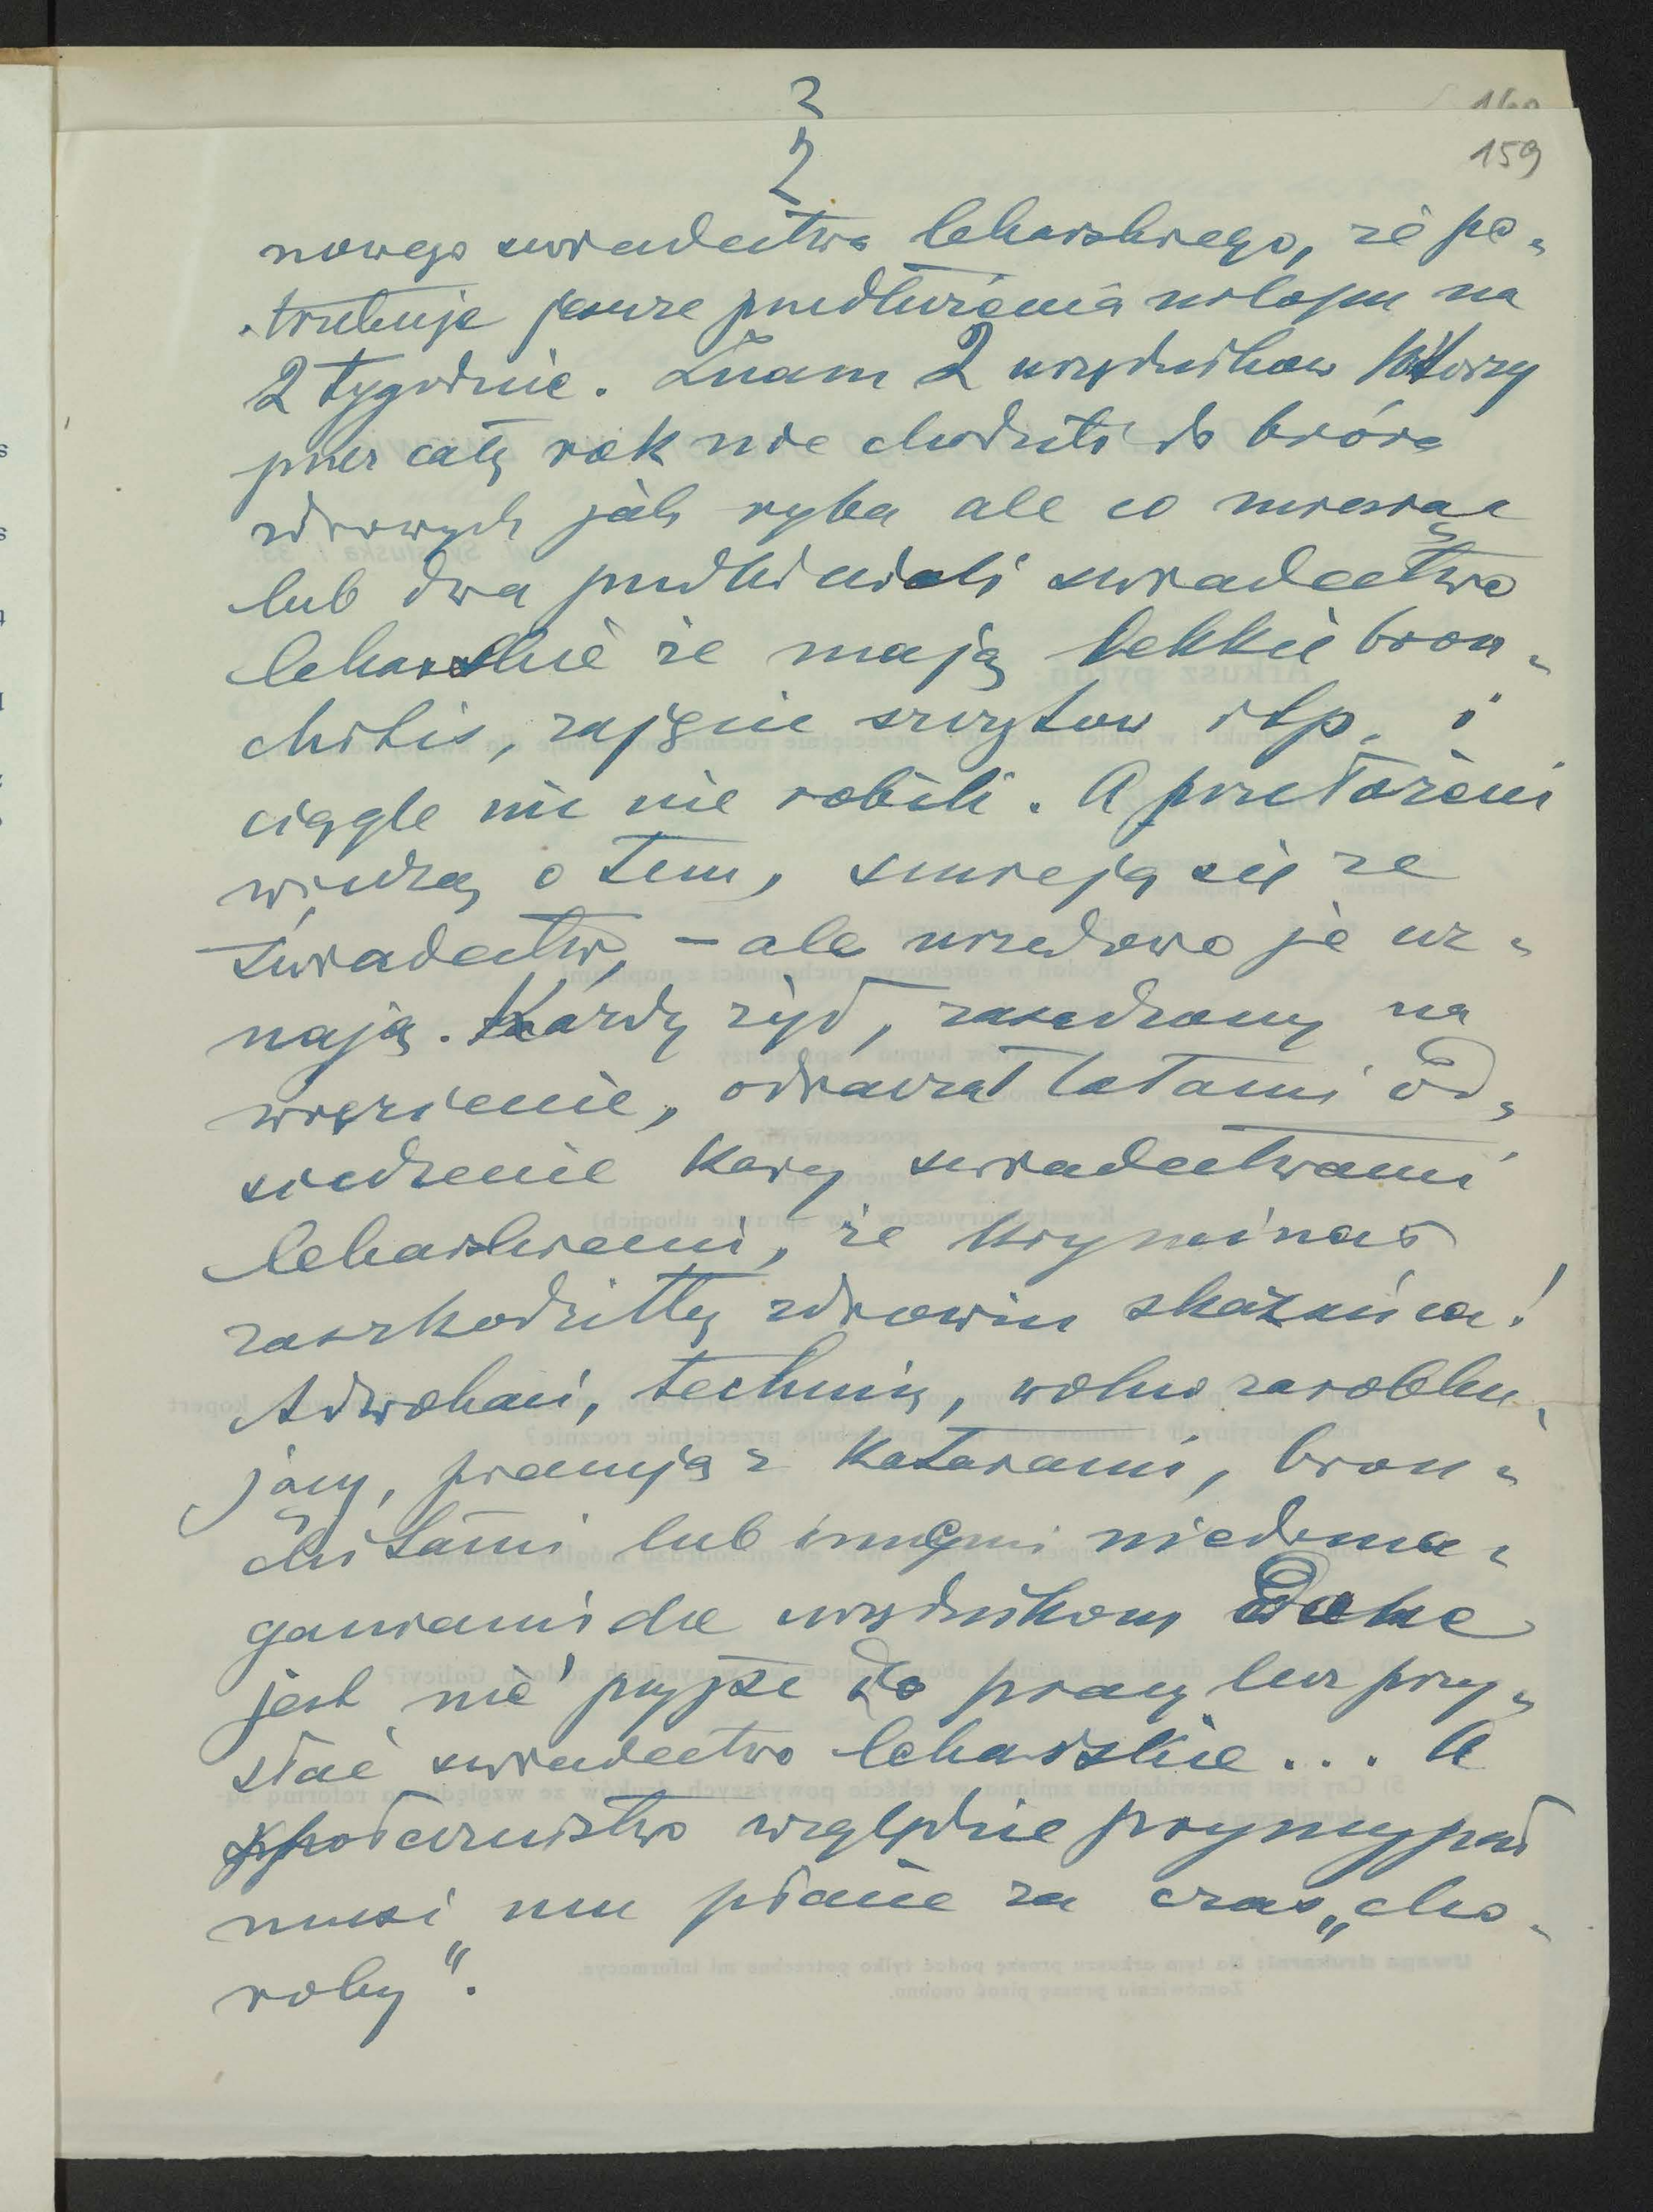 3
160
2
159
nowego świadectwa lekarskiego, że po-
trzebuje jeszcze przedłużenia urlopu na
2 tygodnie. Znam 2 urzędników którzy
przez cały rok nie chodzili do bióra
zdrowych jak ryba ale co miesiąc
lub dwa przedkładali świadectwo
lekarskie że mają lekkie bron-
chitis, zajęcie szczytów itp. i
ciągle nic nie robili. A przełożeni
wiedzą o tem, śmieją się ze
świadectw, – ale urzędowo je uz-
nają. Każdy żyd, zasądzony na
więzienie, odraczał latami od-
siedzenie kary świadectwami
lekarskiemi, że kryminał
zaszkodziłby zdrowiu skazańca!
Adwokaci, technicy, wolno zarobku-
jący, pracują z katarami, bron-
chitami lub innymi niedoma-
ganiami dla urzędników
jest nie przyjść do pracy lecz przy-
słać świadectwo lekarskie... A
społeczeństwo względnie prywny
musi mu płacić za czas „cho-
roby".